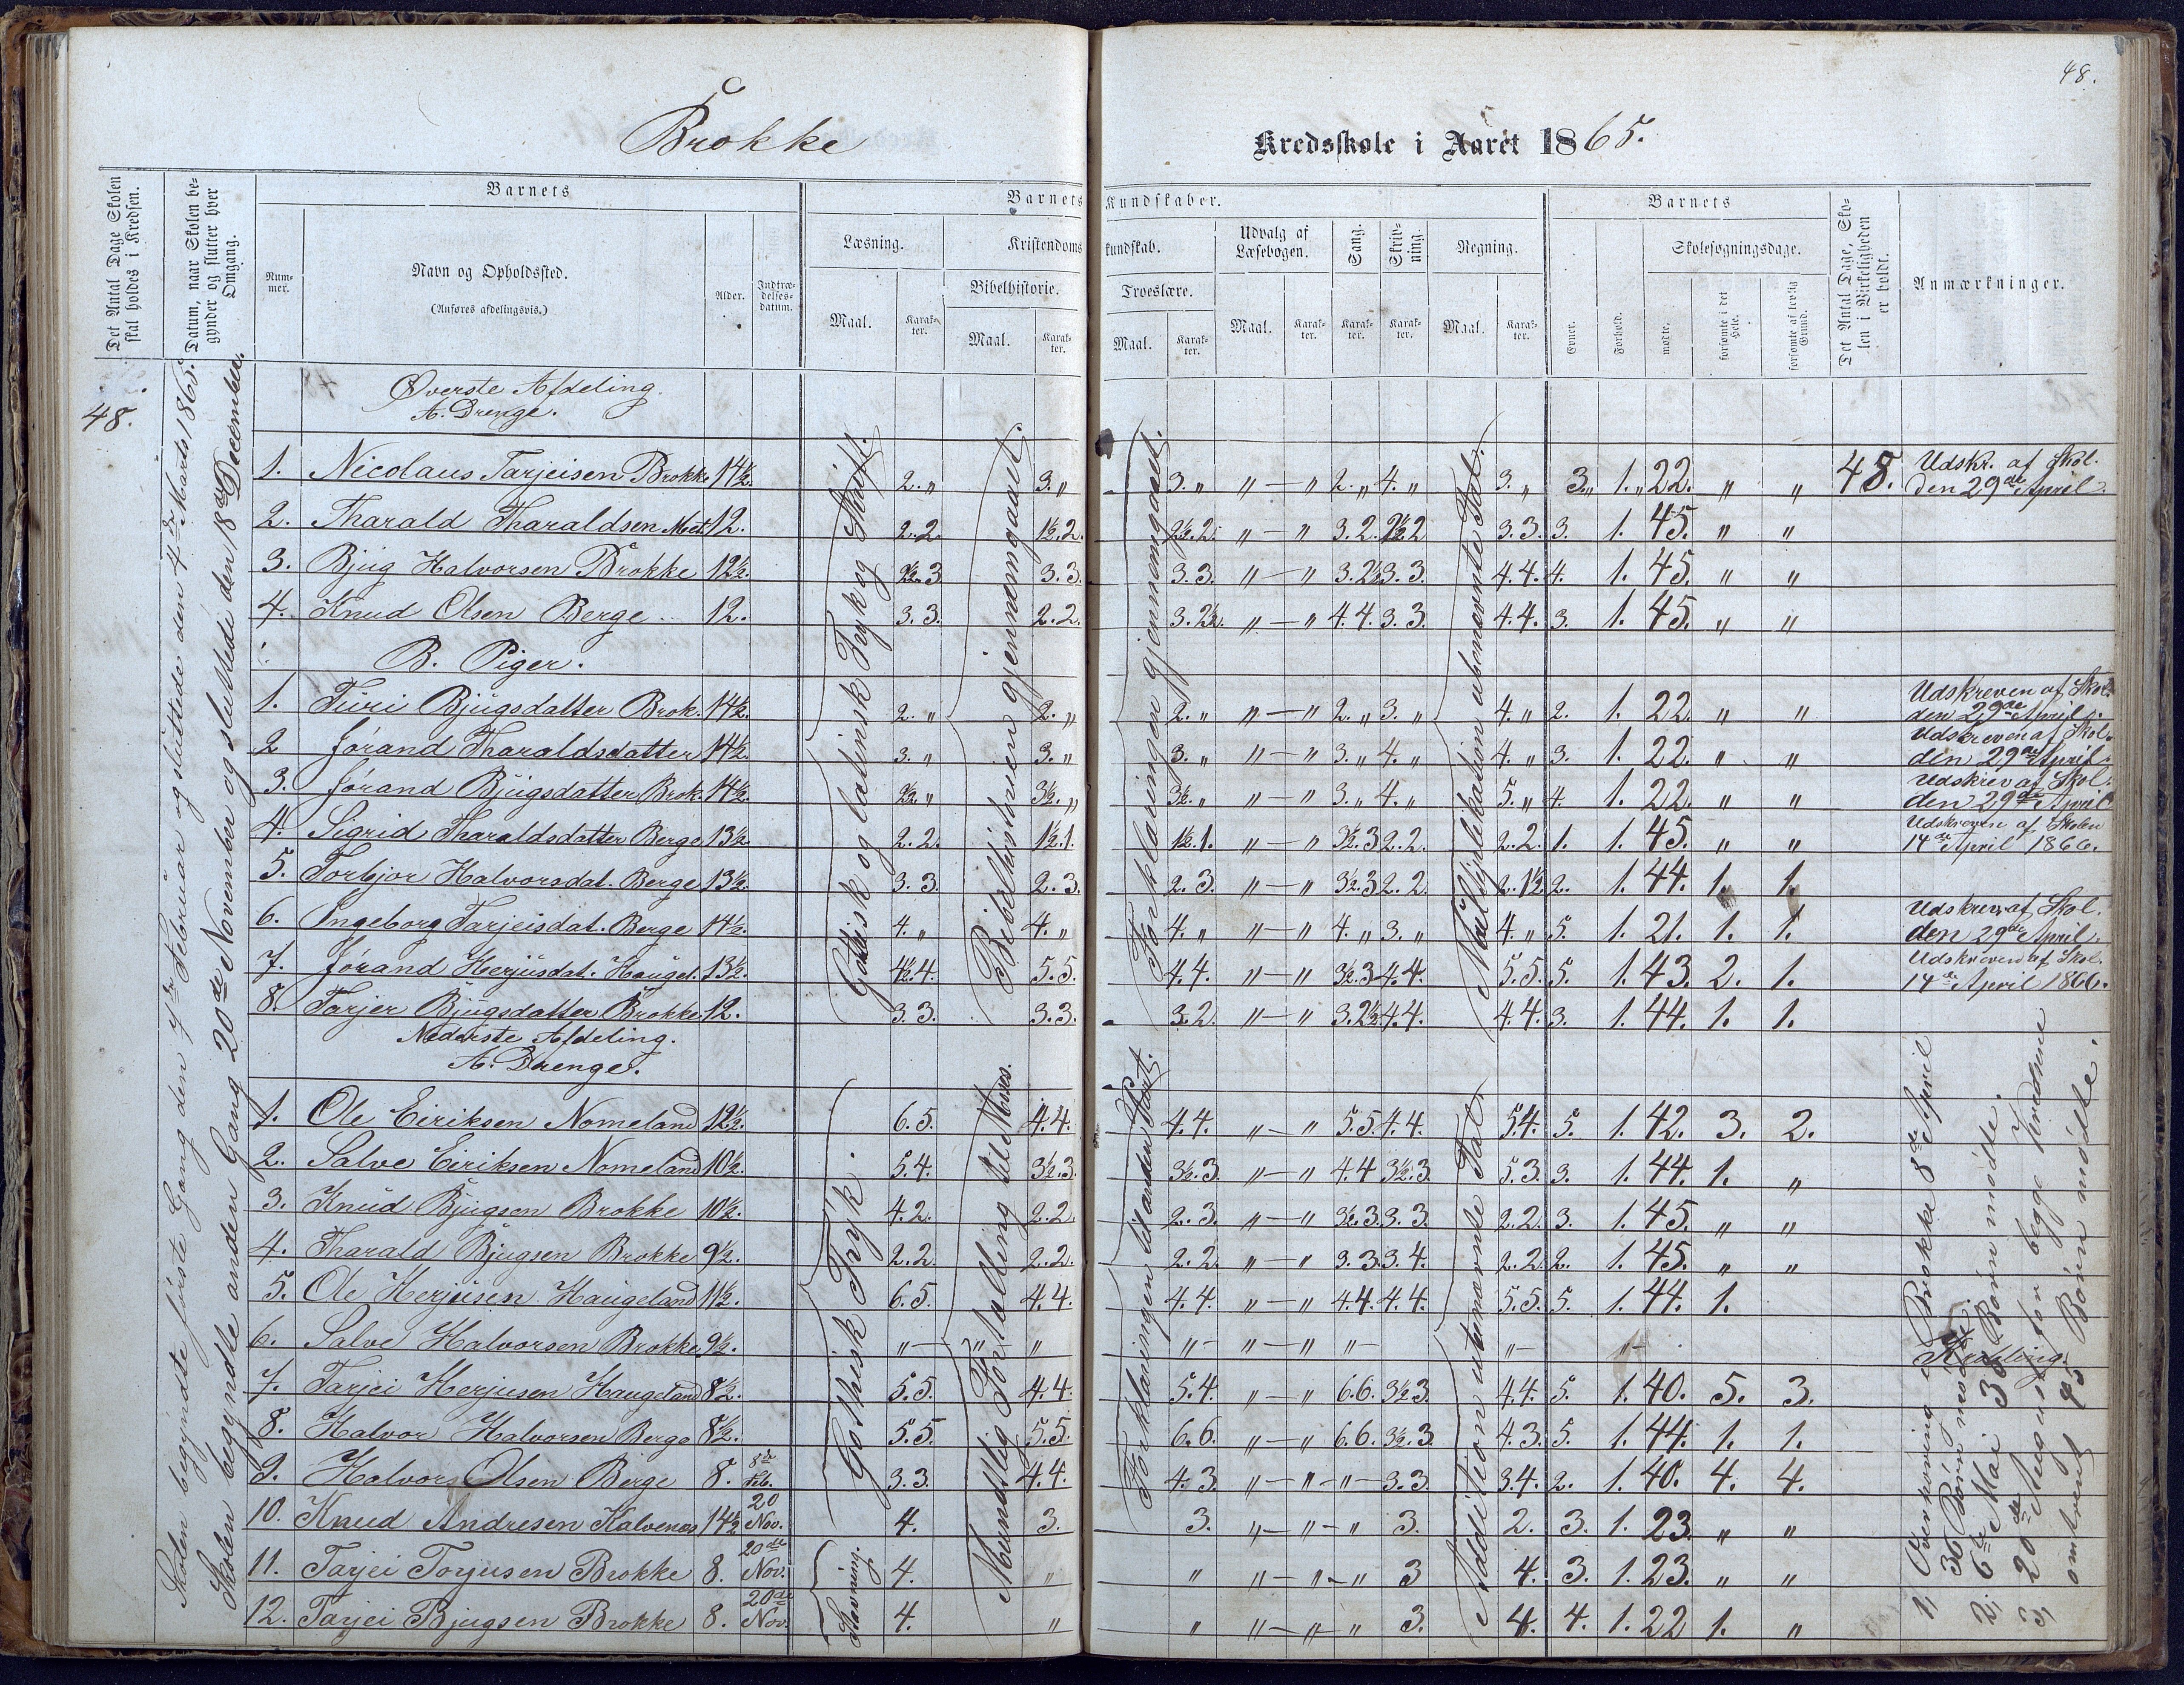 48.
Brokke Kredsskole i Aaret 1865.
Det Antal Dage Skolen skal holdes i Kredsen.
Datum, naar Skolen begynder og slutter hver Omgang.
Barnets
Nummer.
Navn og Opholdssted.
(Anføres afdelingsvis.)
Alder.
Indtrædelsesdatum.
Barnets Kundskaber.
Læsning.
Maal.
Karakter.
Kristendomskundskab.
Bibelhistorie.
Maal.
Karakter.
Troeslære.
Maal.
Karakter.
Udvalg af Læsebogen.
Maal.
Karakter.
Sang.
Karakter.
Skrivning.
Karakter.
Regning.
Maal.
Karakter.
Barnets
Evner.
Forhold.
Skolesøgningsdage.
mødte.
forsømte i det Hele.
forsømte af lovlig Grund.
Det Antal Dage, Skolen i Virkeligheden er holdt.
Anmærkninger.
48.
Skolen begyndte første Gang den 7de Februar og sluttede den 4de Marts 1865.
Skolen begyndte anden Gang 20de November og sluttede den 18de December.
Øverste Afdeling
A. Drenge.
Gothisk og latinsk Tryk og Skrift.
Bibelhistorien gjennemgaaet.
Forklaringen gjennemgaaet.
Multiplikation ubenævnte Tal.
1. Nicolaus Tarjeisen Brokke 14½. 2. " 3. " 3. " " — " 2. " 4. " 3. " 3. " 1. " 22. " " 48. Udskr. af Skol. den 29de April.
2. Tharald Tharaldsen 12. 2.2. 1½.2. 2½.2. " — " 3.2. 2½.2 3.3. 3. 1. 45. " "
3. Bjug Halvorsen Brokke 12½. 2½.3 3.3. 3.3. " — " 3.2½ 3.3. 4.4. 4. 1. 45. " "
4. Knud Olsen Berge 12. 3.3. 2.2. 3.2½. " — " 4.4. 3.3. 4.4. 3. 1. 45. " "
B. Piger.
1. Turi Bjugsdatter Brok. 14½. 2. " 2. " 2. " " — " 2. " 3. " 4. " 2. 1. 22. " " Udskreven af Skol. den 29de April.
2 Jørand Tharaldsdatter 14½. 3. " 3. " 3. " " — " 3. " 4. " 4. " 3. 1. 22. " " Udskreven af Skol. den 29de April.
3. Jørand Bjugsdatter Brok. 14½. 2½. " 3½. " 3½. " " — " 3. " 4. " 5. " 4. 1. 22. " " Udskrev af Skol. den 29de April
4. Sigrid Tharaldsdatter Berge 13½. 2.2. 1½.1. 1½.1. " — " 3½.3 2.2. 2.2. 1. 1. 45. " " Udskreven af Skolen 14de April 1866.
5. Torbjør Halvorsdat. Berge 13½. 3.3. 2.3. 2.3. " — " 3½.3 2.2. 2.1½ 2. 1. 44. 1. 1.
6. Ingeborg Tarjeisdat. Berge 14½. 4. " 4. " 4. " " — " 4. " 3. " 4. " 5. 1. 21. 1. 1. Udskrev. af Skol. den 29de April.
7. Jørand Herjusdat. Haugel. 13½. 4½.4. 5.5. 4.4. " — " 3½.3 4.4. 5.5. 5. 1. 43. 2. 1. Udskreven af Skol. 14de April 1866.
8. Tarjer Bjugsdatter Brokke 12. 3.3. 3.3. 3.2. " — " 3.2½ 4.4. 4.4. 3. 1. 44. 1. 1.
Nederste Afdeling.
A. Drenge.
Gothisk Tryk.
Mundtlig Fortælling til Moses.
Forklaringen til anden Part.
Addition ubenævnte Tal.
1. Ole Eiriksen Nomeland 12½. 6.5. 4.4. 4.4. " — " 5.5 4.4. 5.4. 5. 1. 42. 3. 2.
2. Salve Eiriksen Nomeland 10½. 5.4. 3½.3. 3½.3. " — " 4.4 3½.3 5.3. 3. 1. 44. 1. "
3. Knud Bjugsen Brokke 10½. 4.2. 2.2. 2.3. " — " 3½.3. 3.3. 2.2. 3. 1. 45. " "
4. Tharald Bjugsen Brokke 9½. 2.2. 2.2. 2.2. " — " 3.3. 3.4. 2.2. 2. 1. 45. " "
5. Ole Herjusen Haugeland 11½. 6.5. 4.4. 4.4. " — " 4.4. 4.4. 5.5. 5. 1. 44. 1.
6. Salve Halvorsen Brokke 9½. " — " " " — " — " " — " — " —
7. Tarjei Herjusen Haugeland 8½. 5.5. 4.4. 5.4. " — " 6.6. 3½.3 4.4. 5. 1. 40. 5. 3.
8. Halvor Halvorsen Berge 8½. 5.5. 5.5. 6.6. " — " 6.6. 3½.3 4.3. 5. 1. 44. 1. 1.
9. Halvor Olsen Berge 8. 8de Feb. 3.3. 4.4. 4.3. " — " — " — 3.3. 3.4. 2. 1. 40. 4. 4.
10. Knud Andresen Kalvenes 14½ 20 Nov. 4. 3. 3. " — " — " 3. 2. 3. 1. 23. " "
Stavning.
11. Tarjei Torjusen Brokke 8. 20de Nov. 4. " " " — " — " 3 4. 3. 1. 23. " "
12. Tarjei Bjugsen Brokke 8. 20de Nov. 4. " " " — " — " 3. 4. 4. 1. 22 1. "
1, Overhøring i Brokke 8de April
36 Børn mødte.
2, 6te Mai 36 Børn mødte.
3, 20de August for begge Kredsene
omtrent 45 Børn mødte.